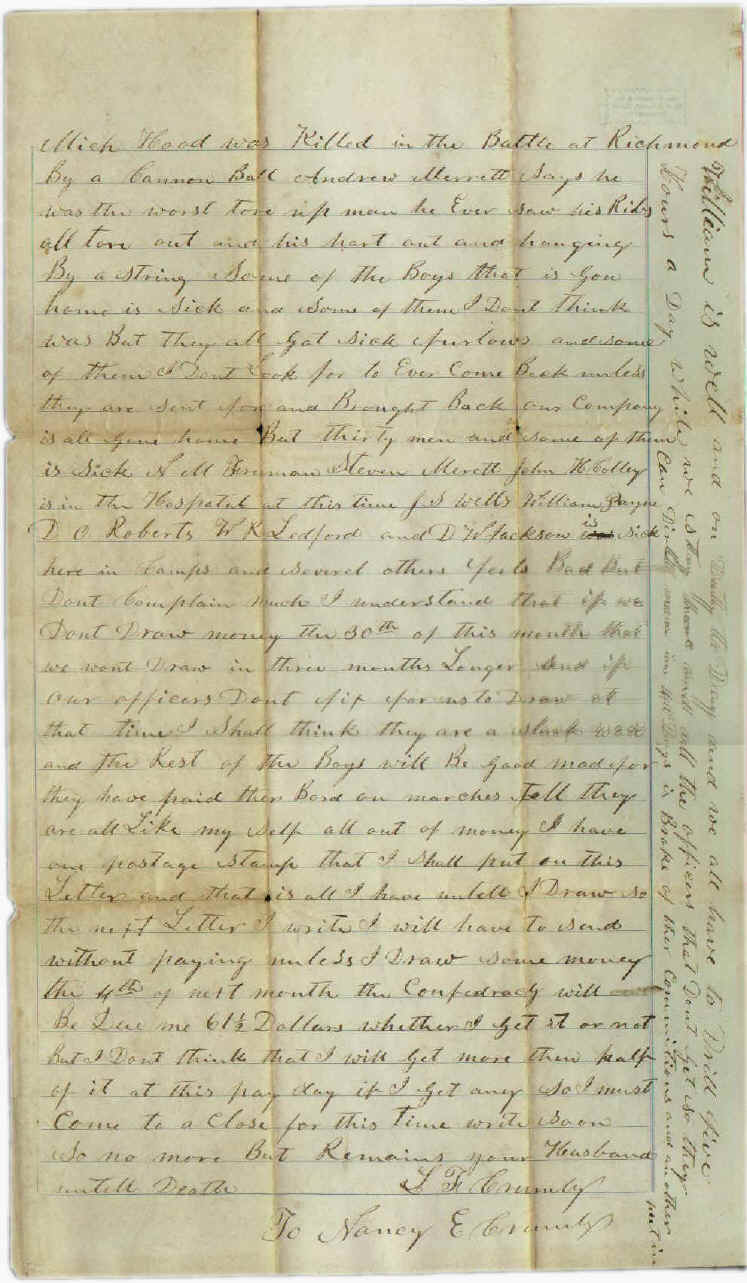 Mich Hood was Killed in the Battle at Richmond
By a Cannon Ball Andrew Merrett Says he
was the worst tore up man he Ever Saw his Ribs
all tore out and his hart out and hanging
By a String Some of the Boys that is gon
home is Sick and Some of them I Dont think
was But they all Got Sick furlows and some
of them I Dont Look for to Ever Come Back unless
they are Sent for and Brought Back our Company
is all gone home But thirty men and Some of them
is Sick N M Freeman Steven Merett John H Colley
is in the Hospetal at this time J S Wells William Payne
D C Roberts W K Ledford and D W Jackson is Sick
here in Camps and Several others feels Bad But
Dont Complain much I understand that if we
Dont Draw money the 30th of this month that
we wont Draw in three months Longer and if
our officers Dont fix for us to Draw at
that time I Shall think they are a slack
and the Rest of the Boys will Be good mad for
they have paid ther Bord on marches tell they
are all Like my Self all out of money I have
one postage Stamp that I Shall put on this
Letter and that is all I have untell I Draw So
the next Letter I write I will have to Send
without paying unless I Draw Some money
the 4th of next month the Confedracy will
Be Due me 61½ Dollars whether I Get it or not
But I Dont think that I will Get more then half
of it at this pay day if I Get any So I must
Come to a Close for this Time write Soon
So no more But Remains your Husband
untell Death L F Crumly
To Nancy E Crumly
William is well and on Duty to Day and we all have to Drill five
Hours a Day while we stay here and all the officers that Dont Get So they
Can Drill men in 40 Days is Broke of ther Commitions and another
put in